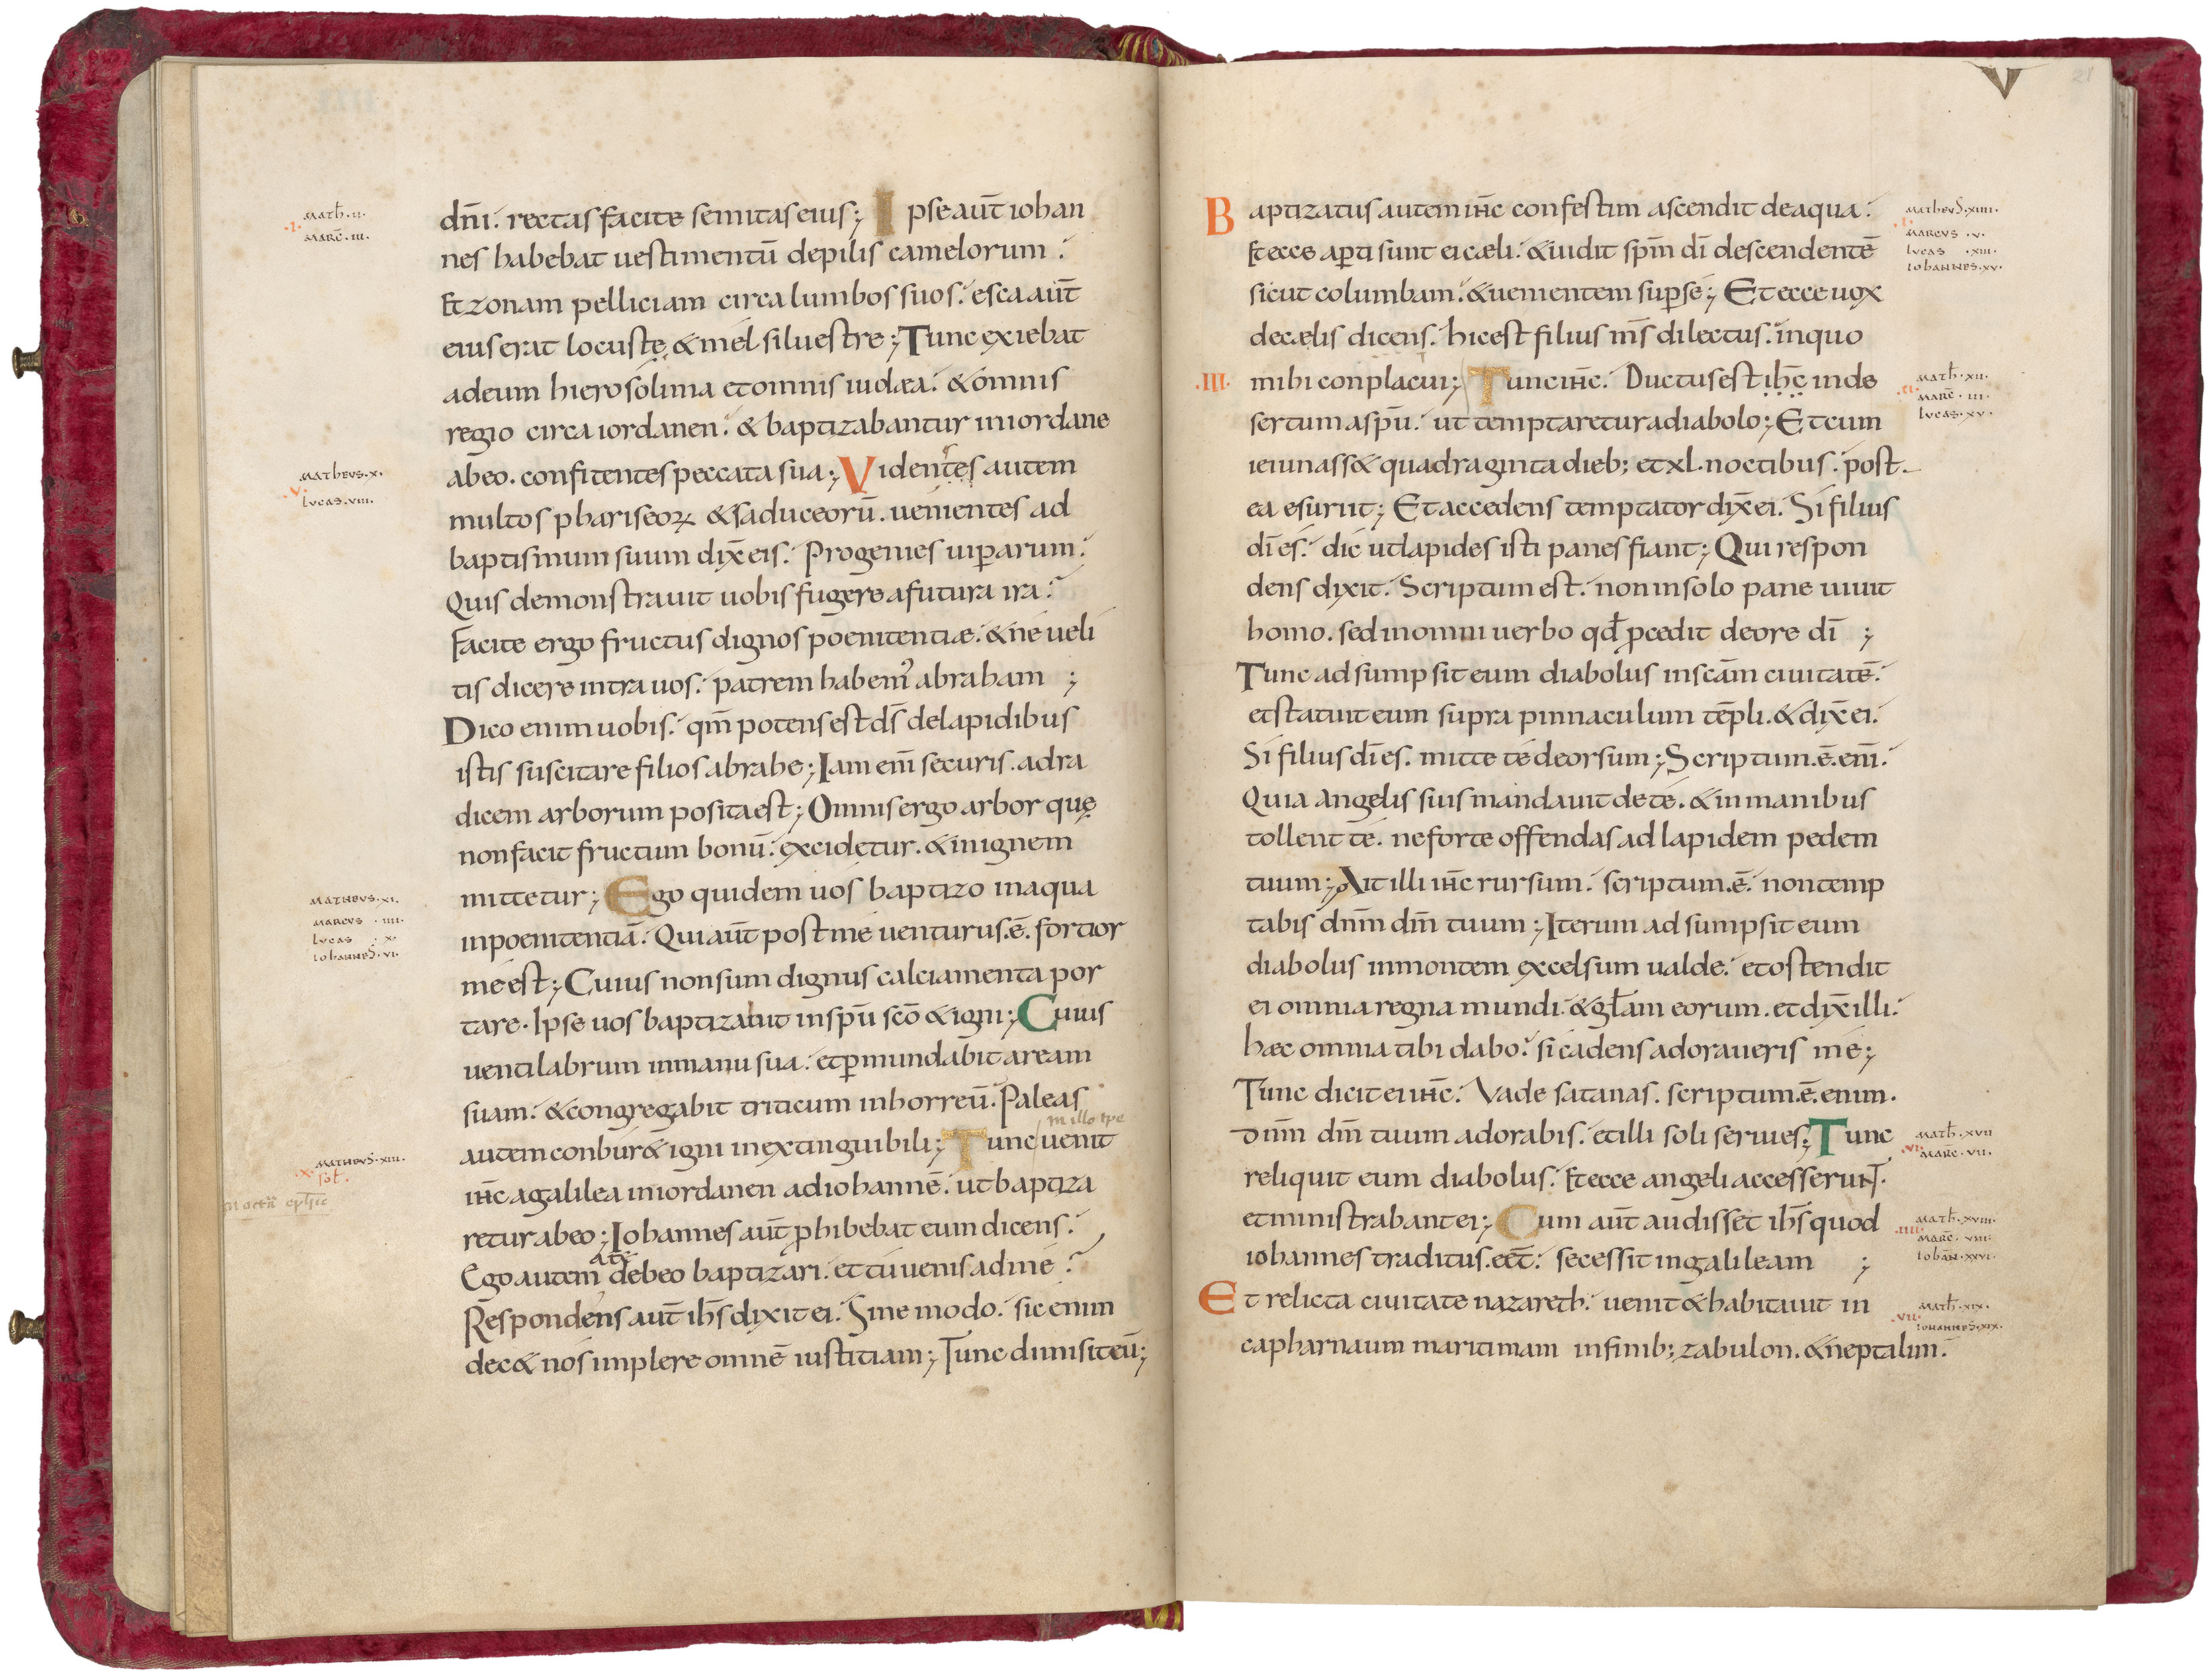 Math. II.
.I.
Marc̄. III.
dn̄i. rectas facite semitas eius; Ipse aut̄ iohan
nes habebat uestimentū de pilis camelorum.
Et zonam pelliciam circa lumbos suos. esca aut̄
eius erat locustę & mel siluestre; Tunc exiebat
ad eum hierosolima et omnis iudæa. & omnis
regio circa iordanen. & baptizabantur in iordane
Matheus. X.
.V.
Lucas. VIII.
ab eo. confitentes peccata sua; Videntes autem
multos phariseoꝝ & saduceorū. uenientes ad
baptismum suum dix̄ eis. Progenies uiꝑarum.
Quis demonstrauit uobis fugere a futura ira?
Facite ergo fructus dignos poenitentiæ. & ne ueli
tis dicere intra uos. patrem habem᾽ abraham ;
Dico enim uobis. qm̄ potens est ds̄ de lapidibus
istis suscitare filios abrahe; Iam eni̅ securis. ad ra
dicem arborum posita est; Omnis ergo arbor quę
non facit fructum bonū. excidetur. & in ignem
Matheus. XI.
Marcus . IIII.
Lucas . X.
Iohannes. VI.
mittetur; Ego quidem uos baptizo in aqua
in poenitentiā. Qui aut̄ post me uenturus .ē. fortior
me est; Cuius non sum dignus calciamenta por
tare. Ipse uos baptizabit in spū scō & igni; Cuius
uentilabrum in manu sua. et ꝑmundabit aream
suam. & congregabit triticum in horreū. Paleas
in illo tpe
autem conbur& igni inextinguibili; Tunc uenit
Matheus. XIII.
.X.
sol.
ih̄c a galilea in iordanen ad iohannē. ut baptiza
retur ab eo; Iohannes aut̄ ꝓhibebat eum dicens.
a te
Ego autem debeo baptizari. et tu uenis ad me?
Respondens aut̄ ih̄s dixit ei. Sine modo. sic enim
dec& nos implere omnē iustitiam; Tunc dimisit eū;
21
Baptizatus autem ih̄c confestim ascendit de aqua.
Matheus. XIIII.
.I.
Marcus . V.
Lucas . XIII.
Iohannes. XV.
Et ecce aꝑti sunt ei cæli. & uidit spm̄ dī descendentē
sicut columbam. & uenientem suꝑ se; Et ecce uox
de cælis dicens. hic est filius ms̄ dilectus. in quo
.III. mihi conplacui; Tunc ih̄c. Ductus est ih̄c in de
Math. XII.
.II.
Marc̄. III.
Lucas. XV.
sertum a spū. ut temptaretur a diabolo; Et cum
ieiunass& quadraginta dieb; et xl. noctibus. post
ea esuriit; Et accedens temptator dix̄ ei. Si filius
dī es. dic ut lapides isti panes fiant; Qui respon
dens dixit. Scriptum est. non in solo pane uiuit
homo. sed in omni uerbo qd̄ ꝓcedit de ore dī ;
Tunc adsumpsit eum diabolus in scām ciuitatē.
et statuit eum supra pinnaculum tēpli. & dix̄ ei.
Si filius dī es. mitte te deorsum; Scriptum .ē. eni̅.
Quia angelis suis mandauit de te. & in manibus
tollent te. ne forte offendas ad lapidem pedem
tuum; Ait illi ih̄c rursum. scriptum .ē. non temp
tabis dnm̄ dm̄ tuum; Iterum adsumpsit eum
diabolus in montem excelsum ualde. et ostendit
ei omnia regna mundi. & gl̄am eorum. et dix̄ illi.
hæc omnia tibi dabo. si cadens adoraueris me;
Tunc dicit ei ih̄c. Vade satanas. scriptum .ē. enim.
dnm̄ dm̄ tuum adorabis. et illi soli seruies; Tunc
Math. XVII
.VI.
Marc̄. VII.
reliquit eum diabolus. Et ecce angeli accesserunt.
et ministrabant ei; Cum aut̄ audisset ih̄s quod
Math. XVIII.
.IIII.
Marc̄. VIII.
Iohān. XXVI.
iohannes traditus. eet̄. secessit in galileam ;
Et relicta ciuitate nazareth. uenit & habitauit in
Math. XIX.
.VII.
Iohannes. XIX.
capharnaum maritimam in finib; zabulon. & neptalim.